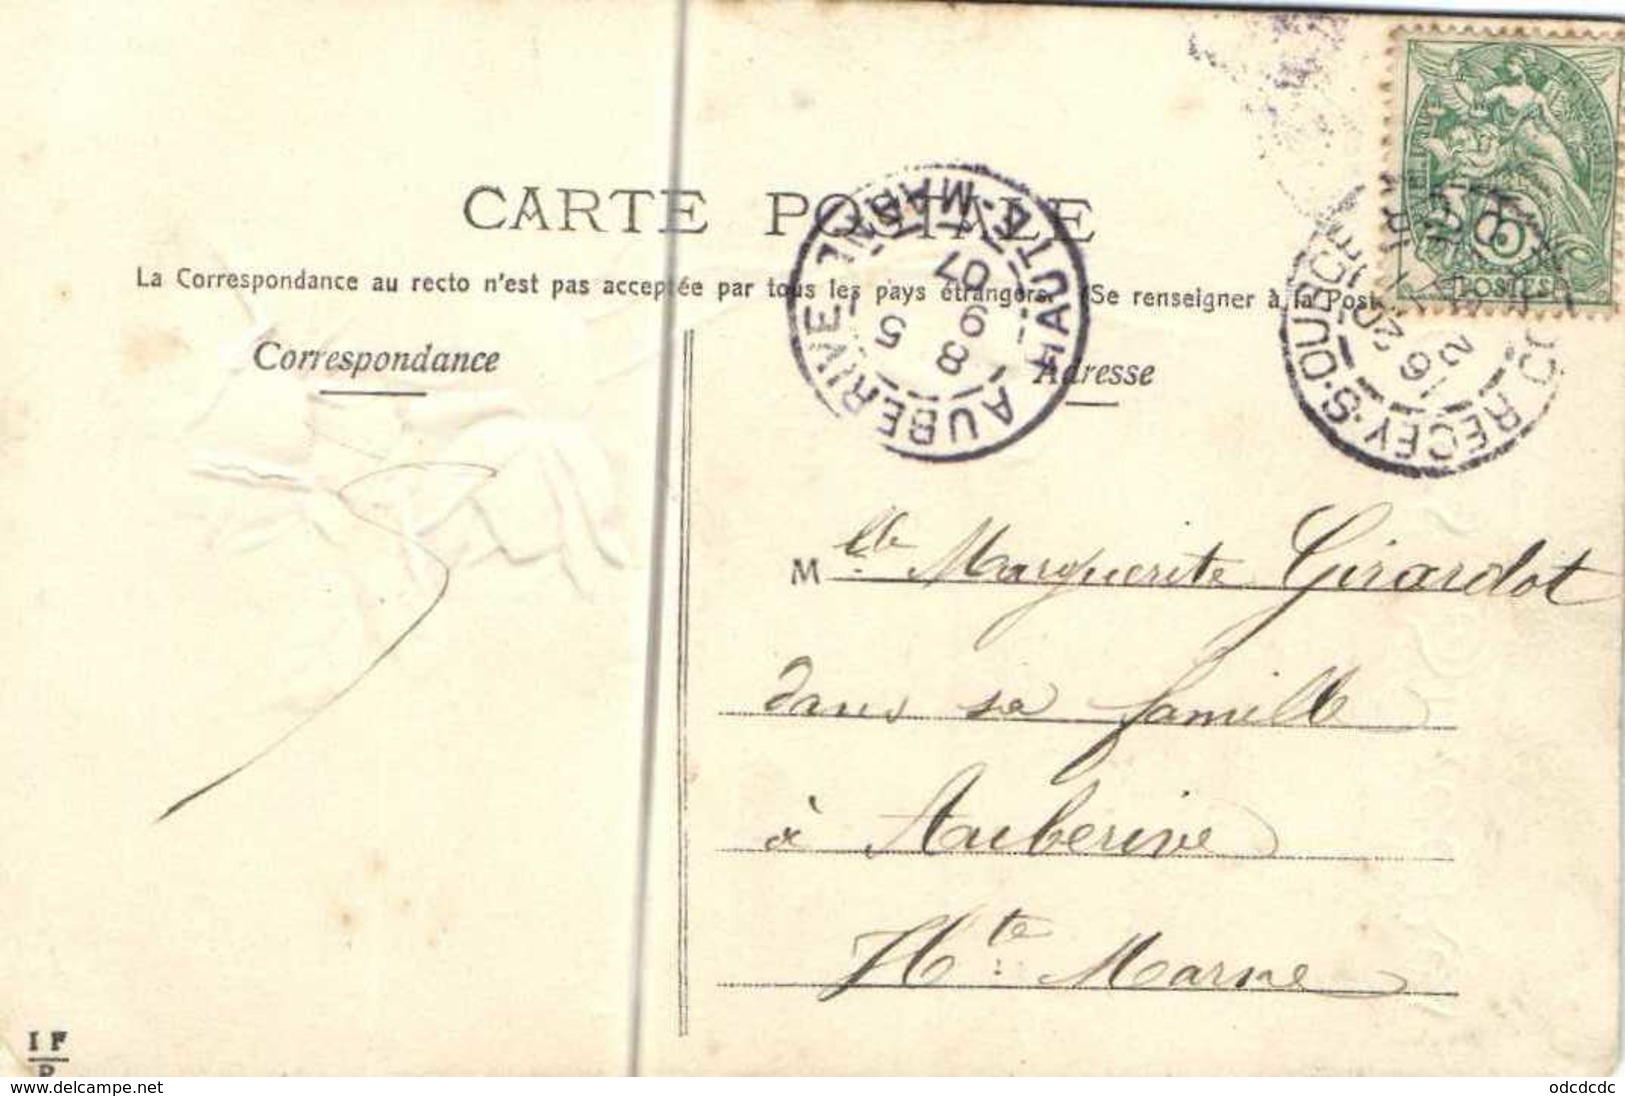 CARTE POSTALE
La Correspondance au recto n'est pas acceptée par tous les pays étrangers. (Se renseigner à la Post
Correspondance
Adresse
AUBERIVE
HAUTE-MARNE
5
8 9
07
RECEY-S-OURCE
POSTES
5
Mlle Marguerite Girardot
dans sa famille
à Auberive
Hte Marne
I F
www.delcampe.net
odcdcdc